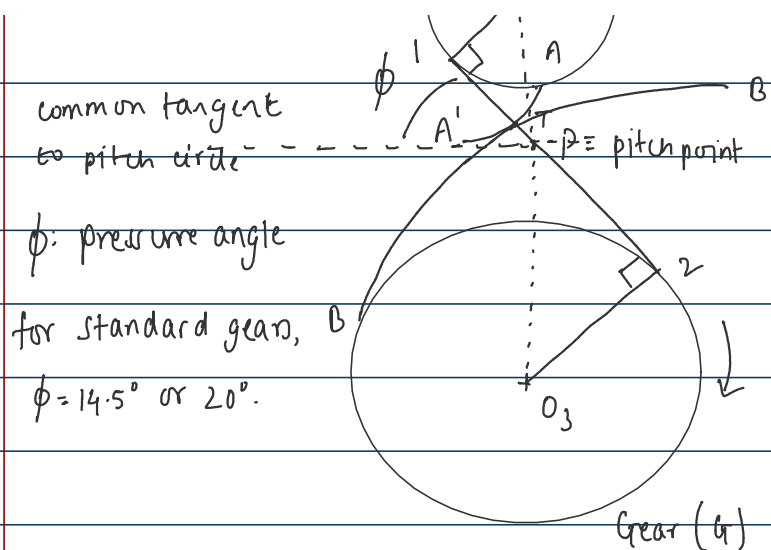 1
A
ϕ
B
common tangent
A'
to pitch circle
P ≡ pitch point
ϕ: pressure angle
2
for standard gears,
B
ϕ = 14.5° or 20°.
O3
Gear (G)